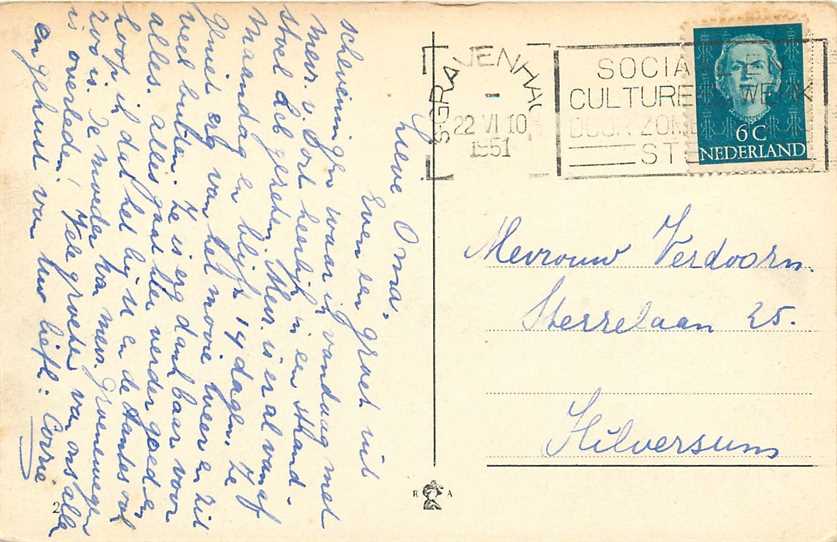 Lieve Oma.
Even een groet uit
scheveningen waar ik vandaag met
mevr. v. Oort heerlijk in een strand-
stoel heb gezeten. Mevr. is er al vanaf
Maandag en blijft 14 dagen. Ze
geniet erg van het mooie weer en zit
veel buiten. Ze is erg dankbaar voor
alles. alles gaat hier verder goed en
hoop ik dat het bij U en de tantes ook
zoo is. De moeder van mevr. Groeneweegen
is overleden! Vele groeten van ons allen
en gekust van Uw liefh: Corrie.
'S-GRAVENHAG
22 VI 10
1951
SOCIA
CULTURE WERK
DOOR ZOME
STE
6 C
NEDERLAND
Mevrouw Verdoorn.
Sterrelaan 25.
Hilversum
R A
2